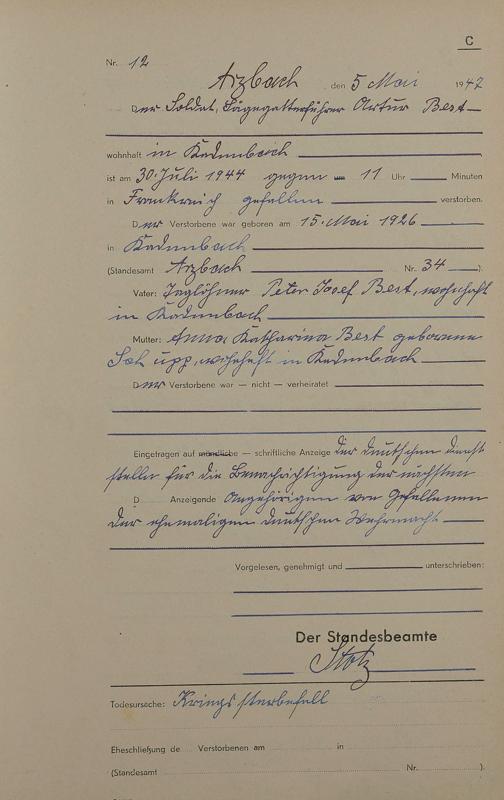 C
Nr. 12
Arzbach, den 5 Mai 1947
Der Soldat, Sägegatterführer Artur Best
wohnhaft in Kadenbach
ist am 30. Juli 1944 gegen 11 Uhr Minuten
in Frankreich gefallen verstorben.
Der Verstorbene war geboren am 15. Mai 1926
in Kadenbach
(Standesamt Arzbach Nr. 34 ).
Vater: Taglöhner Peter Josef Best, wohnhaft
in Kadenbach
Mutter: Anna Katharina Best geborene
Schupp, wohnhaft in Kadenbach
Der Verstorbene war — nicht — verheiratet
Eingetragen auf mündliche — schriftliche Anzeige der deutschen Dienst
stelle für die Benachrichtigung der nächsten
D Anzeigende Angehörigen von Gefallenen
der ehemaligen deutschen Wehrmacht
Vorgelesen, genehmigt und unterschrieben:
Der Standesbeamte
Stotz
Todesursache: Kriegssterbefall
Eheschließung de Verstorbenen am in
(Standesamt Nr. ).